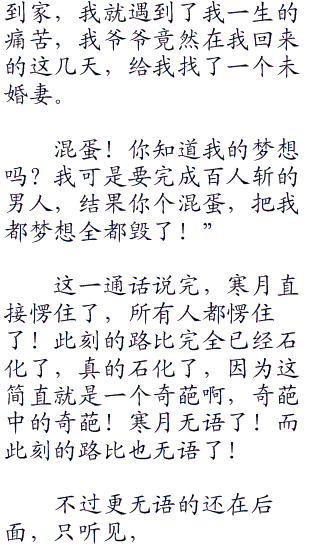 到家，我就遇到了我一生的
痛苦，我爷爷竟然在我回来
的这几天，给我找了一个未
婚妻。
混蛋！你知道我的梦想
吗？我可是要完成百人斩的
男人，结果你个混蛋，把我
都梦想全都毁了！”
这一通话说完，寒月直
接愣住了，所有人都愣住
了！此刻的路比完全已经石
化了，真的石化了，因为这
简直就是一个奇葩啊，奇葩
中的奇葩！寒月无语了！而
此刻的路比也无语了！
不过更无语的还在后
面，只听见，